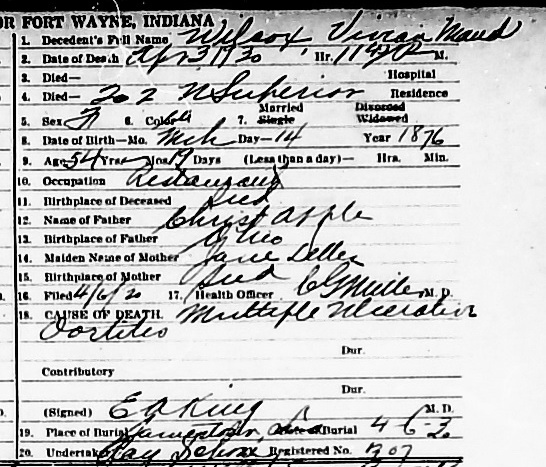 OR FORT WAYNE, INDIANA
1. Decedent's Full Name Wilcox Vivian Maud
2. Date of Death Apr 3 1930 Hr. M.
3. Died— Hospital
4. Died— 202 N Superior Residence
5. Sex F 6. Color W 7. Married Single Divorced Widowed
8. Date of Birth—Mo. Mch Day—14 Year 1876
9. Age 54 Yrs Mos 19 Days (Less than a day)— Hrs. Min.
10. Occupation Restaurant
11. Birthplace of Deceased Ind
12. Name of Father Christ Apple
13. Birthplace of Father Ohio
14. Maiden Name of Mother Jane
15. Birthplace of Mother Ind
16. Filed 4/6/30 17. Health Officer M. D.
18. CAUSE OF DEATH. Multiple Ulcerative
Dur.
Contributory
Dur.
(Signed) E A King M. D.
19. Place of Burial Date of Burial 4-6-30
20. Undertaker Jay Registered No.